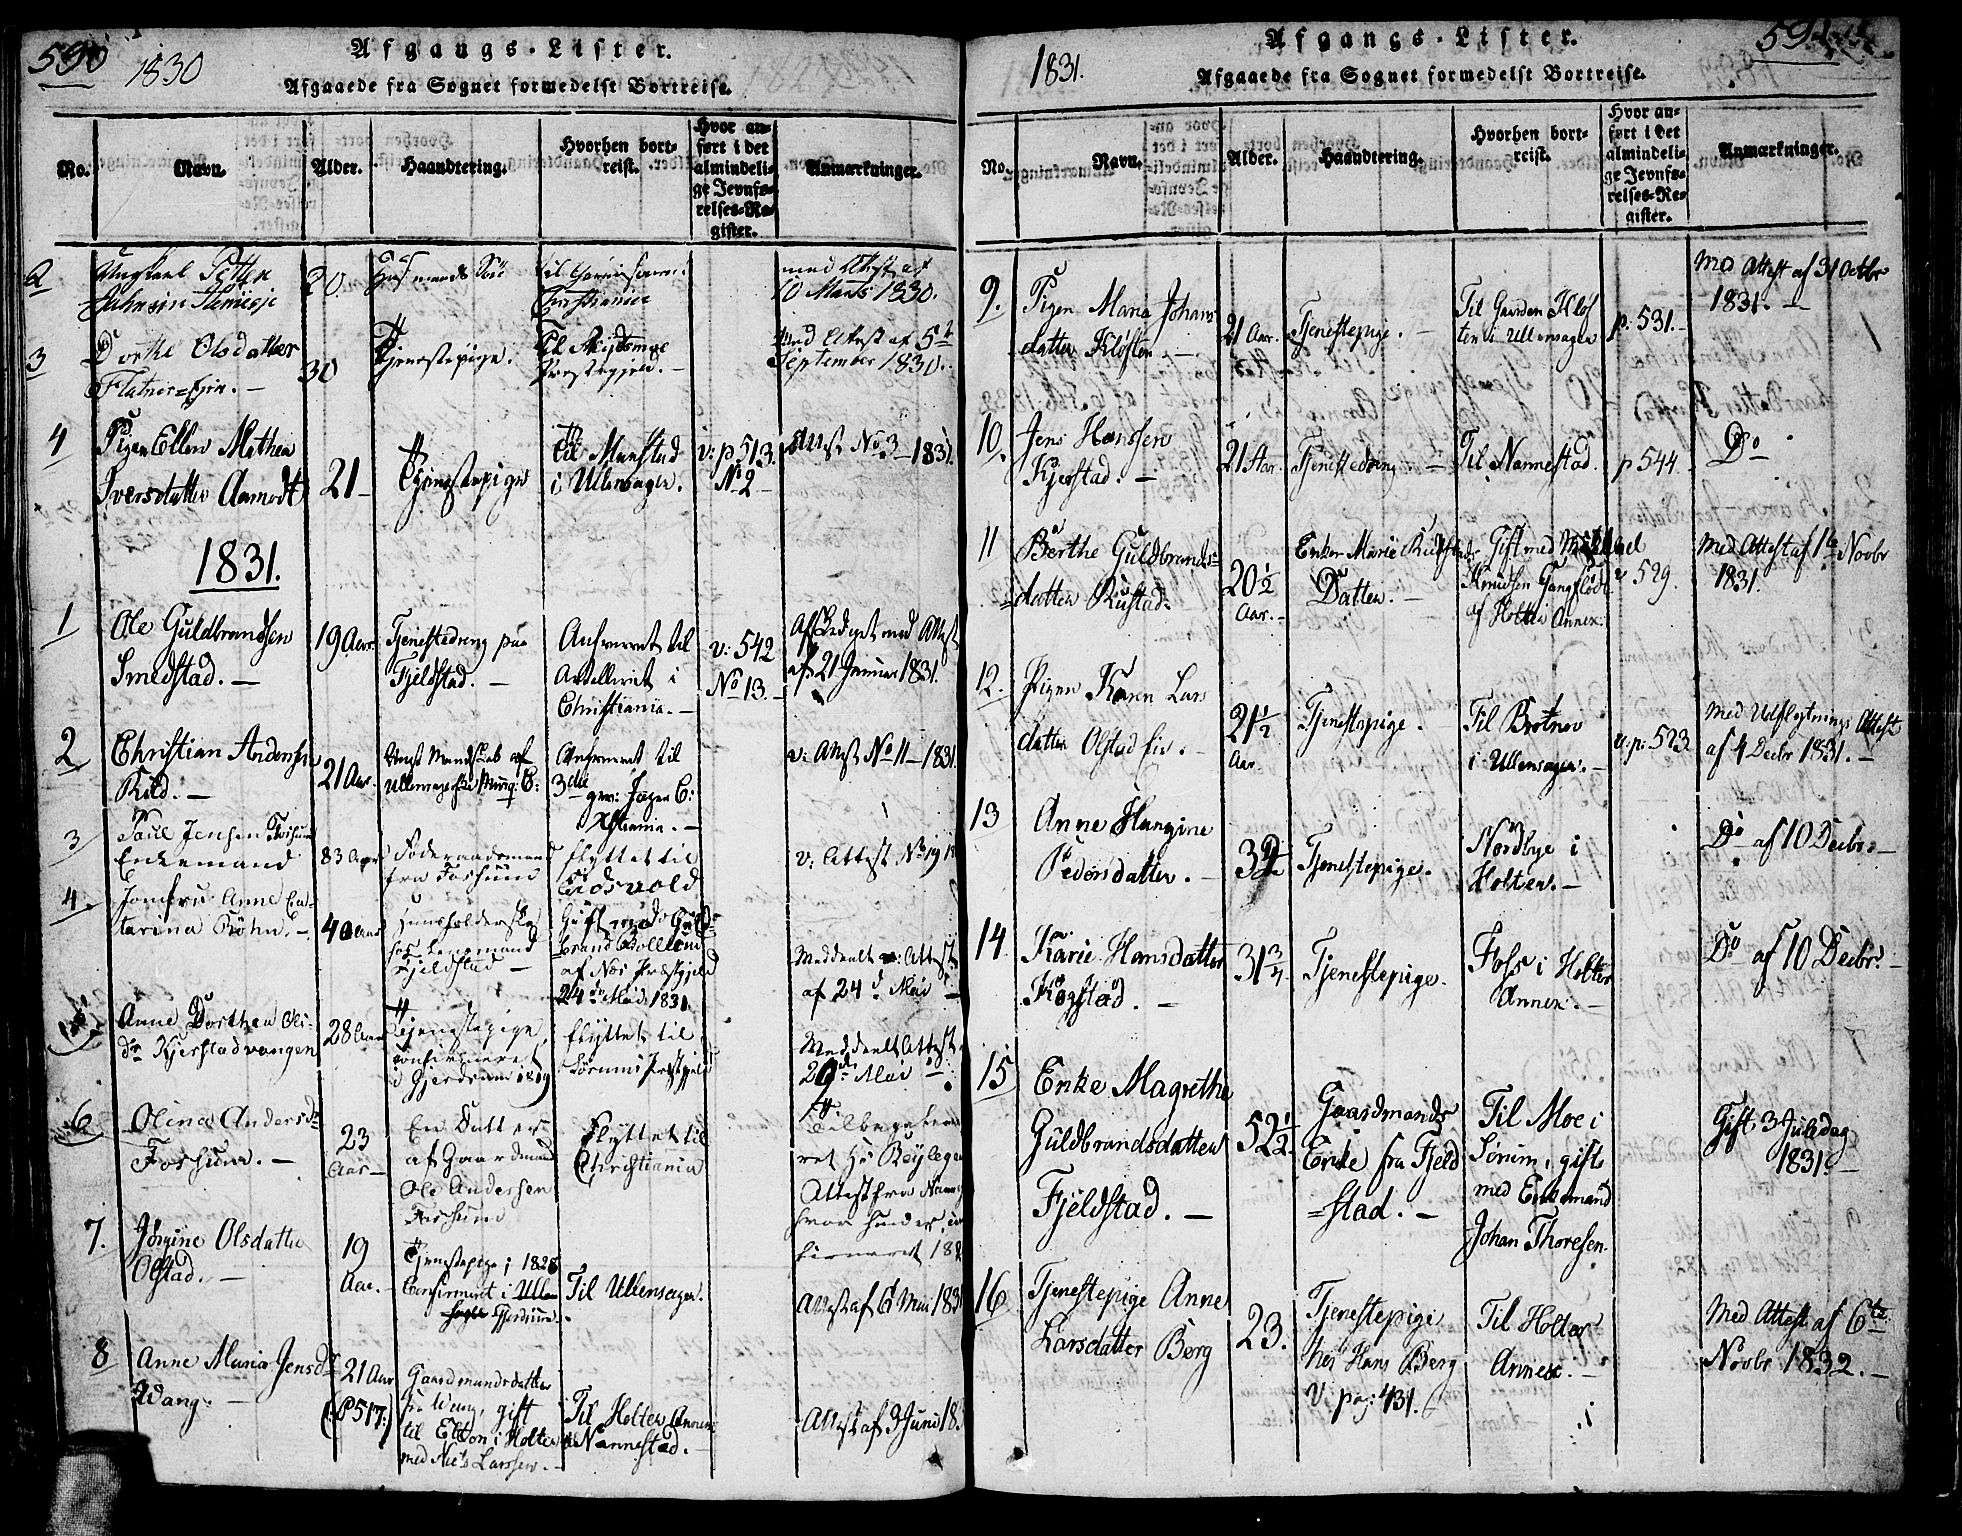 590
1830
Afgangs-Lister.
Afgaaede fra Sognet formedelst Bortreise.
No.
Navn.
Alder.
Haandtering.
Hvorhen bort-
reist.
Hvor an-
ført i det
almindeli-
ge Jevnfø-
relses-Re-
gister.
Anmærkninger.
2
20
Christiania
med Attest af
10 Marts 1830.
3
Dorthe Olsdatter
30
Tjenestepige.
Med Attest af 5te
September 1830.
4
Pigen Ellen Mathea
Iversdatter Aamodt
21
Tjenestepige
i Ullensager.
v: p 513.
No 2
Attest No 3 1831.
1831.
1
Ole Guldbrandsen
Smedstad.
19 Aar
Tjenestedreng paa
Fjeldstad.
til
i
Christiania.
v: 542
No 13.
Attest
af 21 Januar 1831.
2
Christian Andersen
21 Aar.
til
3die
Xstiania.
v: Attest No 11 1831.
3
Paul Jensen Foshum
Enkemand
83 Aar
Foderaadsmand
fra Foshum
flyttet til
Eidsvold
v. Attest No 19
4.
Jomfru Anne Ca-
tarina
40 Aar
Lensmand
Fjeldstad
Gift med Guld-
brand
af Næs Præstgjeld
24de Mai 1831
Meddeelt Attest
af 24d Mai
5
Anne Dorthea Ols-
dr Kjerstadvangen
28 Aar
Tjenestepige,
confirmeret
i Gjerdrum 1819
flyttet til
Sørum Præstgjeld
Meddeelt Attest
29d Mai
6
Olina Andersdr
Foshum.
23
Aar
En Datter
af Gaardmand
Ole Andersen
Foshum
Flyttet til
Christiania
Attest fra
7.
Jørgine Olsdatter
Olstad.
19
Aar.
Tjenestepige i 1828
Confirmeret i
Gjerdrum.
Til Ullensager.
Attest af 6 Mai 183
8
Anne Maria Jensdr
Wang.
21 Aar
(P 517:)
Gaardmandsdatter
fra Wang, gift
til Elton i Holter
med Niels Larssen.
Til Holter Annex
i Nannestad.
Attest af 3 Juni 18
591
1831.
Afgangs-Lister.
Afgaaede fra Sognet formedelst Bortreise.
No.
Navn.
Alder.
Haandtering.
Hvorhen bort-
reist.
Hvor an-
ført i det
almindeli-
ge Jevnfø-
relses-Re-
gister.
Anmærkninger.
9.
Pigen Maria Johans
datter Kløften
21 Aar.
Tjenestepige.
Til Gaarden Kløf
ten i Ullensager
p. 531.
Med Attest af 31 Octbr
1831.
10.
Jens Hanssen
Kjerstad.
21 Aar.
Tjenestedreng.
Til Nannestad.
p 544.
Do
11
Berthe Guldbrands-
datter Rustad.
20½
Aar.
Enken Marie Rustads
Datter.
Gift med
Knudsen
af Holter Annex.
v 529.
Med Attest af 16 Novbr
1831.
12.
Pigen Karen Lars
datter Olstad Eie.
21½
Aar.
Tjenestepige.
Til
i Ullensager.
v: p: 523.
Med Udflytnings Attest
af 4 Decbr 1831.
13
Anne Hangine
Pedersdatter.
Tjenestepige.
Nordbye i
Holter.
Do af 10 Decbr.
14.
Karie Hansdatter
Kogstad.
31¾
Tjenestepige.
Foss i Holter
Annex.
Do af 10 Decbr.
15
Enke Magrethe
Guldbrandsdatter
Fjeldstad.
52½
Gaardmands
Enke fra Fjeld
=stad.
Til Moe i
Sørum, gift
med Enkemand
Johan Thoresen.
Gift 3 Juledag
1831.
16
Tjenestepige Anne
Larsdatter Berg
23.
Tjenestepige
hos Hans Berg
v. pag: 431.
Til Holter
Annex.
Med Attest af 6te
Novbr 1832.